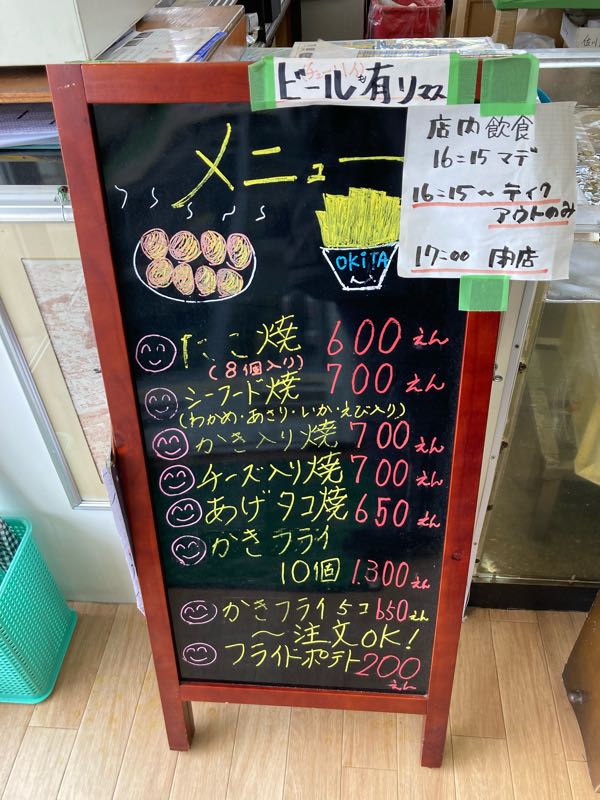 ビール有リマス
店内飲食
16:15マデ
16:15～テイク
アウトのみ
17:00 閉店
メニュー
OKiTA
たこ焼 600えん
(8個入り)
シーフード焼 700えん
(わかめ・あさり・いか・えび入り)
かき入り焼 700えん
チーズ入り焼 700えん
あげタコ焼 650えん
かきフライ
10個 1.300えん
かきフライ5コ 650えん
～注文OK!
フライドポテト 200
えん